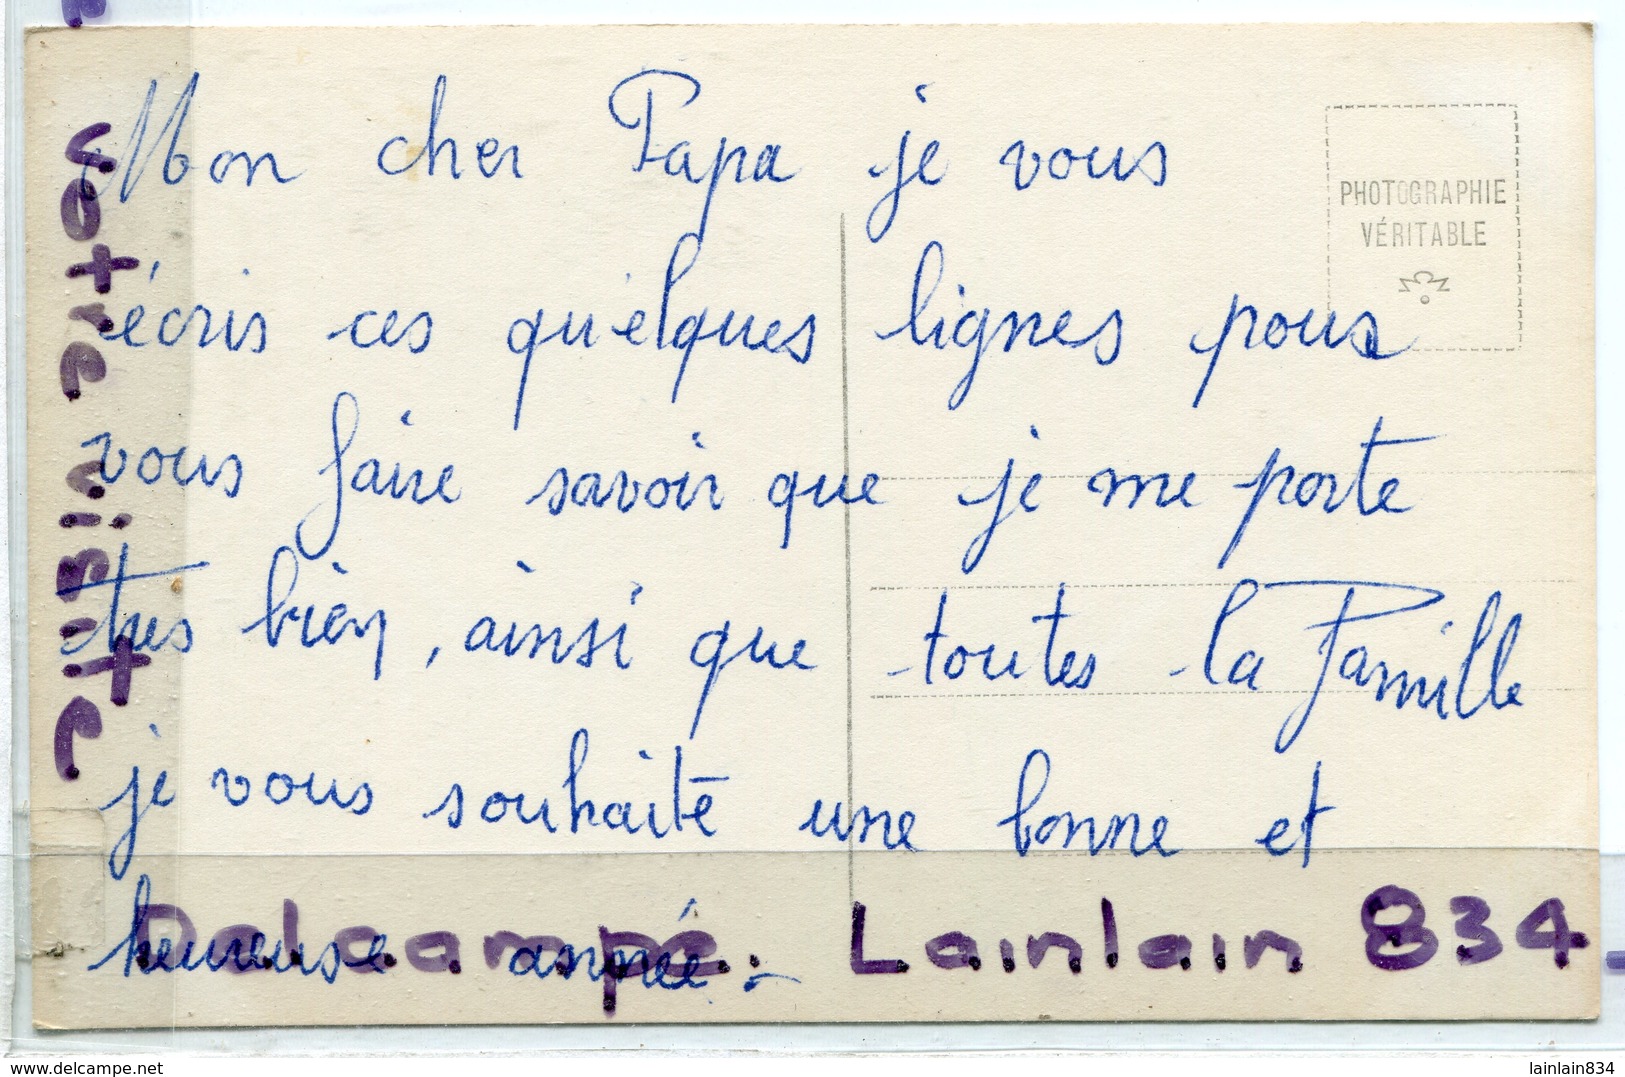 Mon cher Papa je vous
écris ces quelques lignes pour
vous faire savoir que je me porte
tres bien, ainsi que toutes la Famille
je vous souhaite une bonne et
heureuse année. -
PHOTOGRAPHIE
VÉRITABLE
votre visite
Delcampé. Lainlain 834-
www.delcampe.net
lainlain834